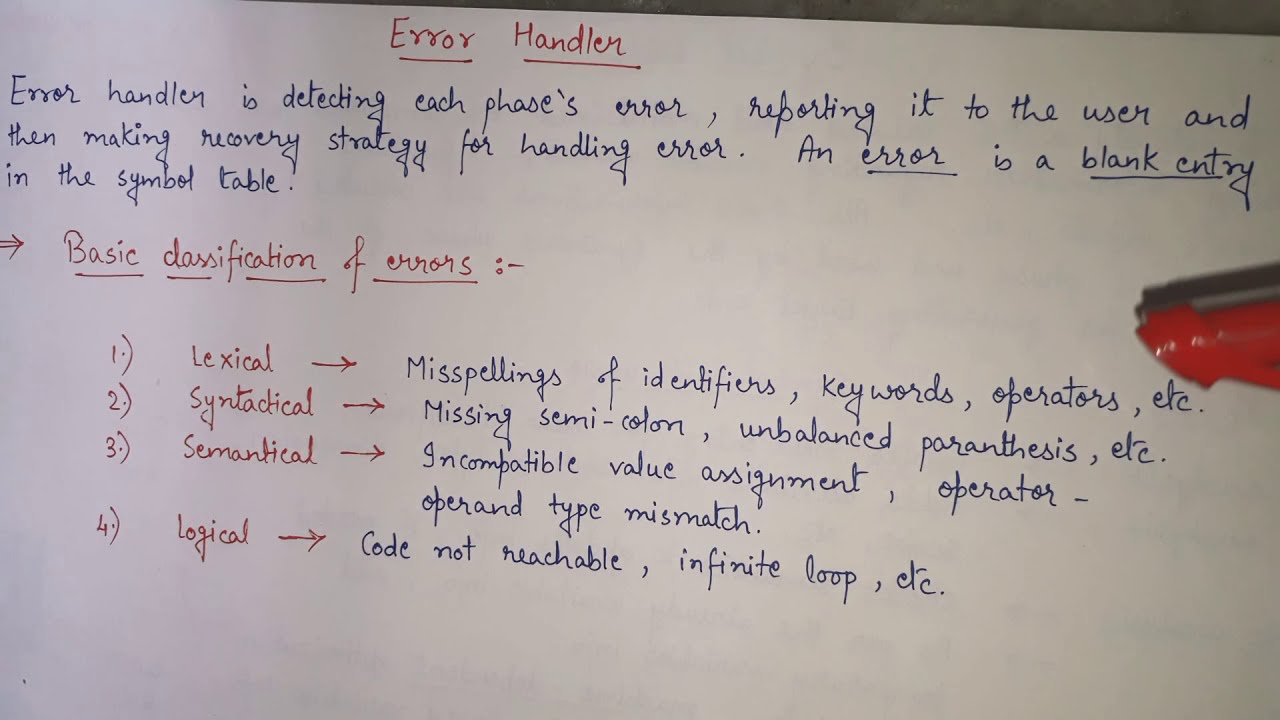 Error Handler
Error handler is detecting each phase's error, reporting it to the user and
then making recovery strategy for handling error. An error is a blank entry
in the symbol table.
⇒ Basic classification of errors :-
1.) Lexical → Misspellings of identifiers, keywords, operators, etc.
2.) Syntactical → Missing semi-colon, unbalanced paranthesis, etc.
3.) Semantical → Incompatible value assignment, operator -
operand type mismatch.
4.) Logical → Code not reachable, infinite loop, etc.